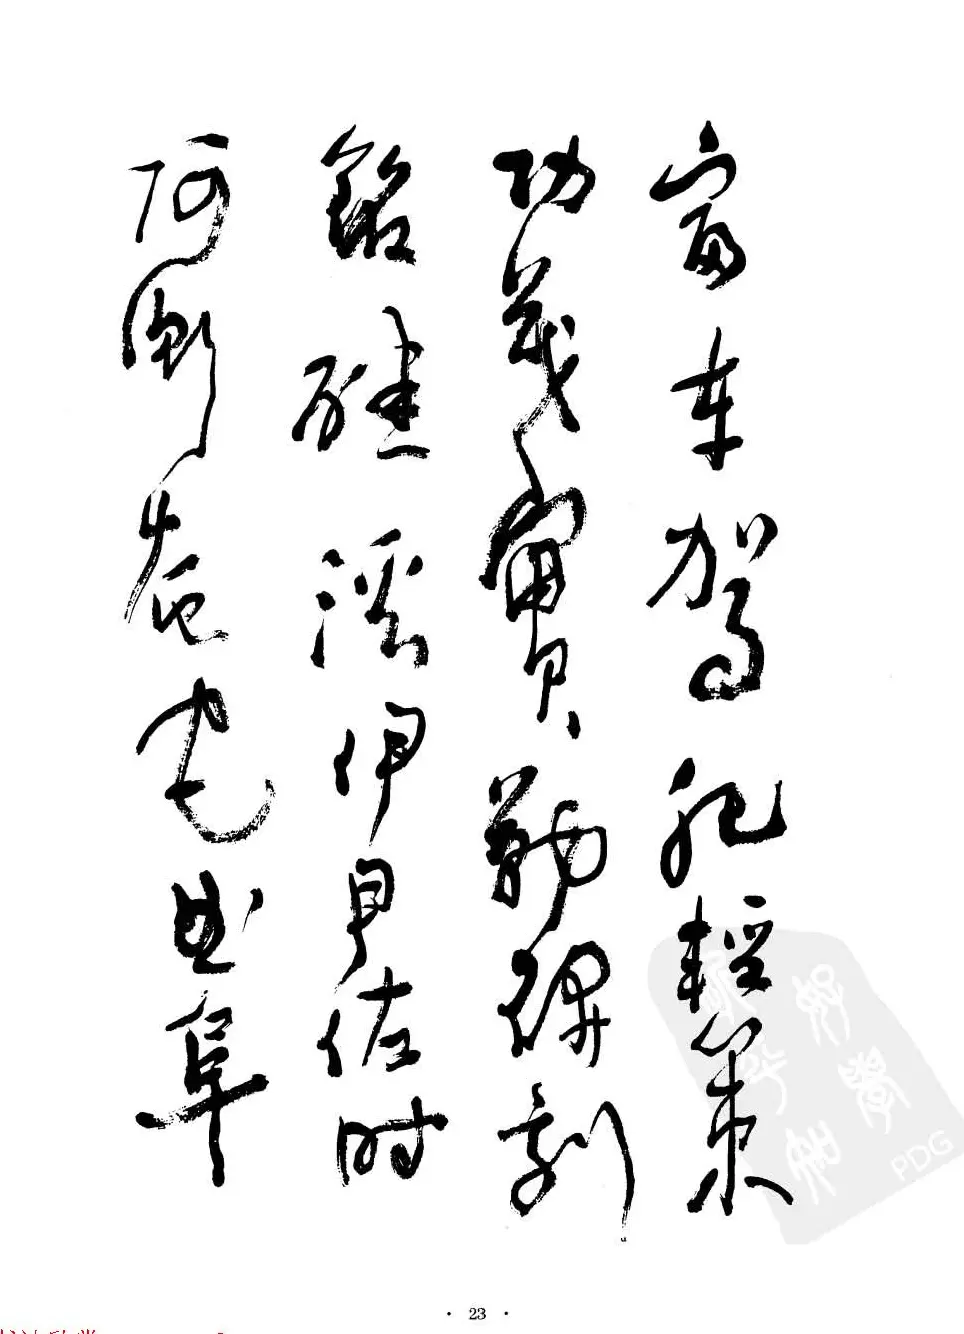 富车驾肥轻策
功茂實勒碑刻
銘磻溪伊尹佐时
阿衡奄宅曲阜
· 23 ·
PDG